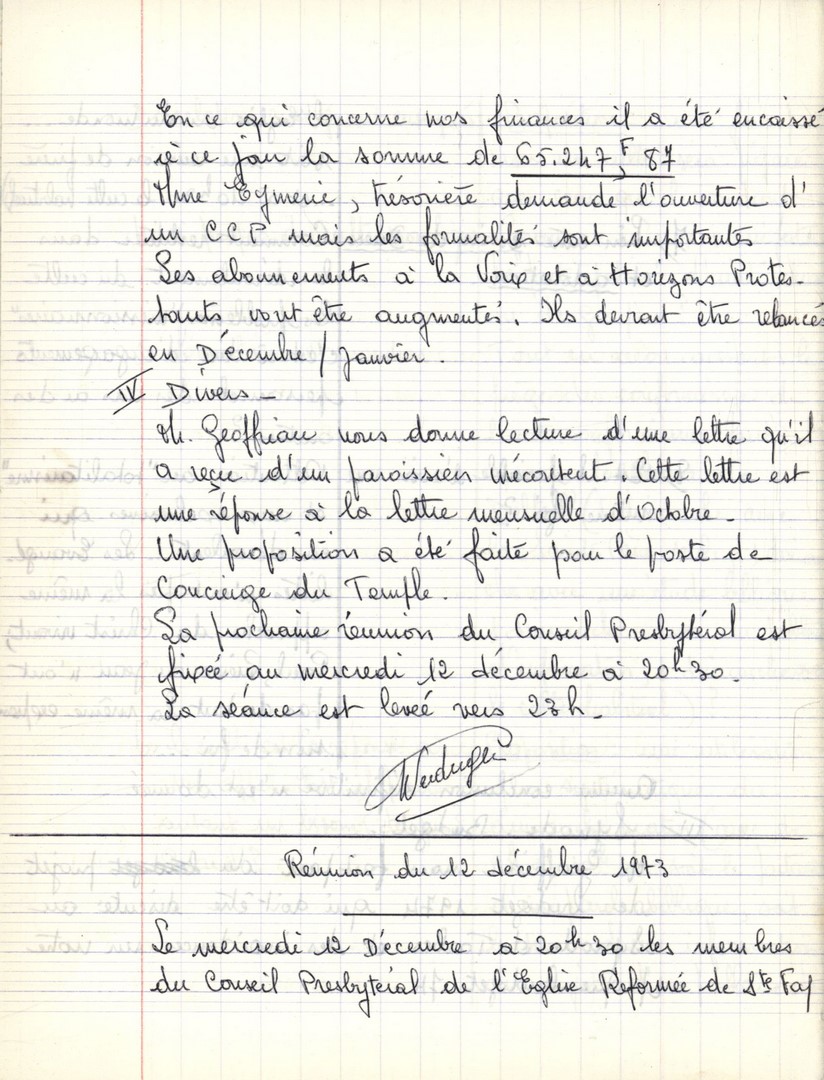 En ce qui concerne nos finances il a été encaissé
à ce jour la somme de 65.247,F 87
Mme Eymerie, trésorière demande l'ouverture d'
un CCP mais les formalités sont importantes
Les abonnements à la Voix et à Horizons Protes-
tants vont être augmentés. Ils devront être relancés
en Décembre / Janvier.
IV Divers -
M. Geoffriau nous donne lecture d'une lettre qu'il
a reçue d'un paroissien mécontent. Cette lettre est
une réponse à la lettre mensuelle d'Octobre -
Une proposition a été faite pour le poste de
Concierge du Temple.
La prochaine réunion du Conseil Presbytéral est
fixée au mercredi 12 décembre à 20h30.
La séance est levée vers 23h -
Réunion du 12 décembre 1973
Le mercredi 12 Décembre à 20h30 les membres
du Conseil Presbytéral de l'Eglise Réformée de Ste Foy